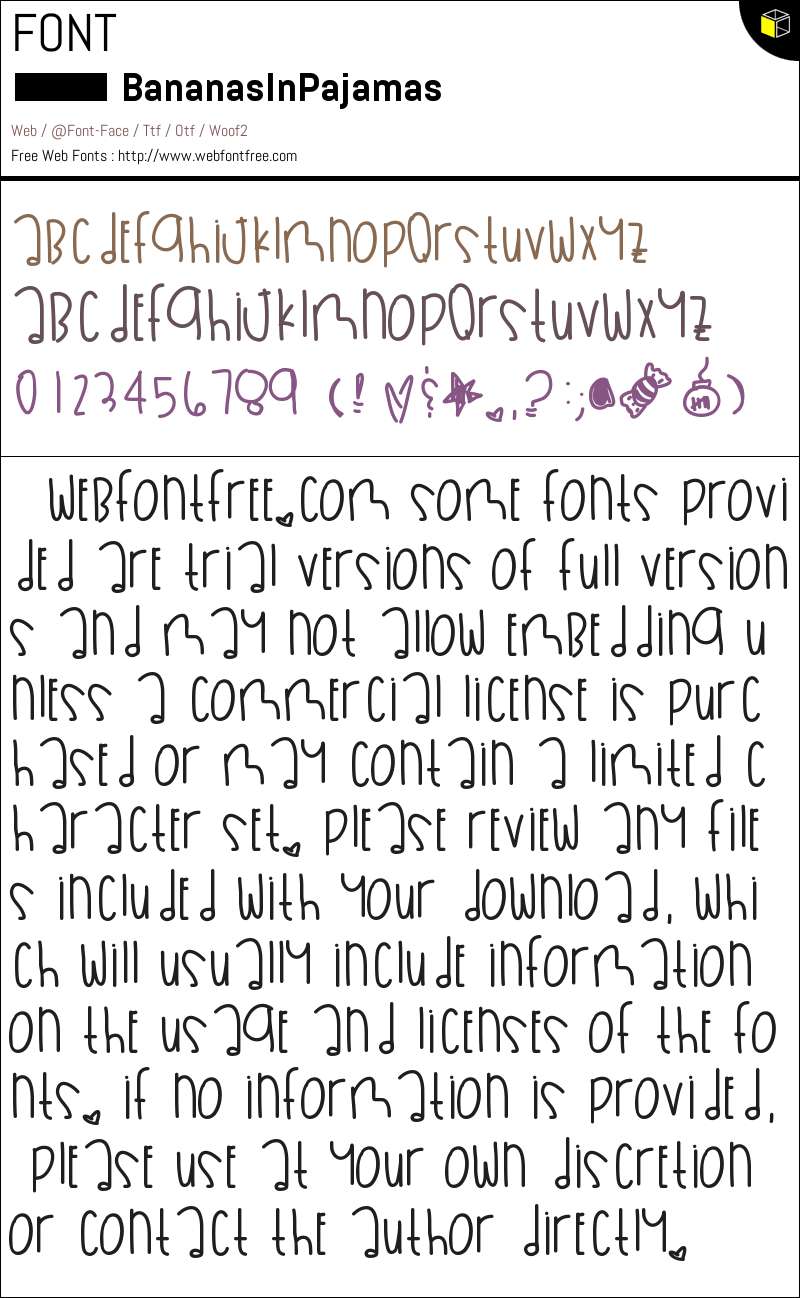 FONT
BananasInPajamas
Web / @Font-Face / Ttf / Otf / Woof2
Free Web Fonts : http://www.webfontfree.com
aBCdEfghiJklmnopQrstuvwxyz
aBCdEfghiJklmnopQrstuvwxyz
0123456789 (! & * . , ? : ; @ )
WEBfontfrEE.Com somE fonts provi
dEd arE trial vErsions of full vErsion
s and may not allow EmBEdding u
nlEss a CommErCial liCEnsE is purC
hasEd or may Contain a limitEd C
haraCtEr sEt. plEasE rEviEW any filE
s inCludEd With your doWnload, Whi
Ch Will usually inCludE information
on thE usagE and liCEnsEs of thE fo
nts. if no information is providEd,
plEasE usE at your oWn disCrEtion
or ContaCt thE author dirECtly.